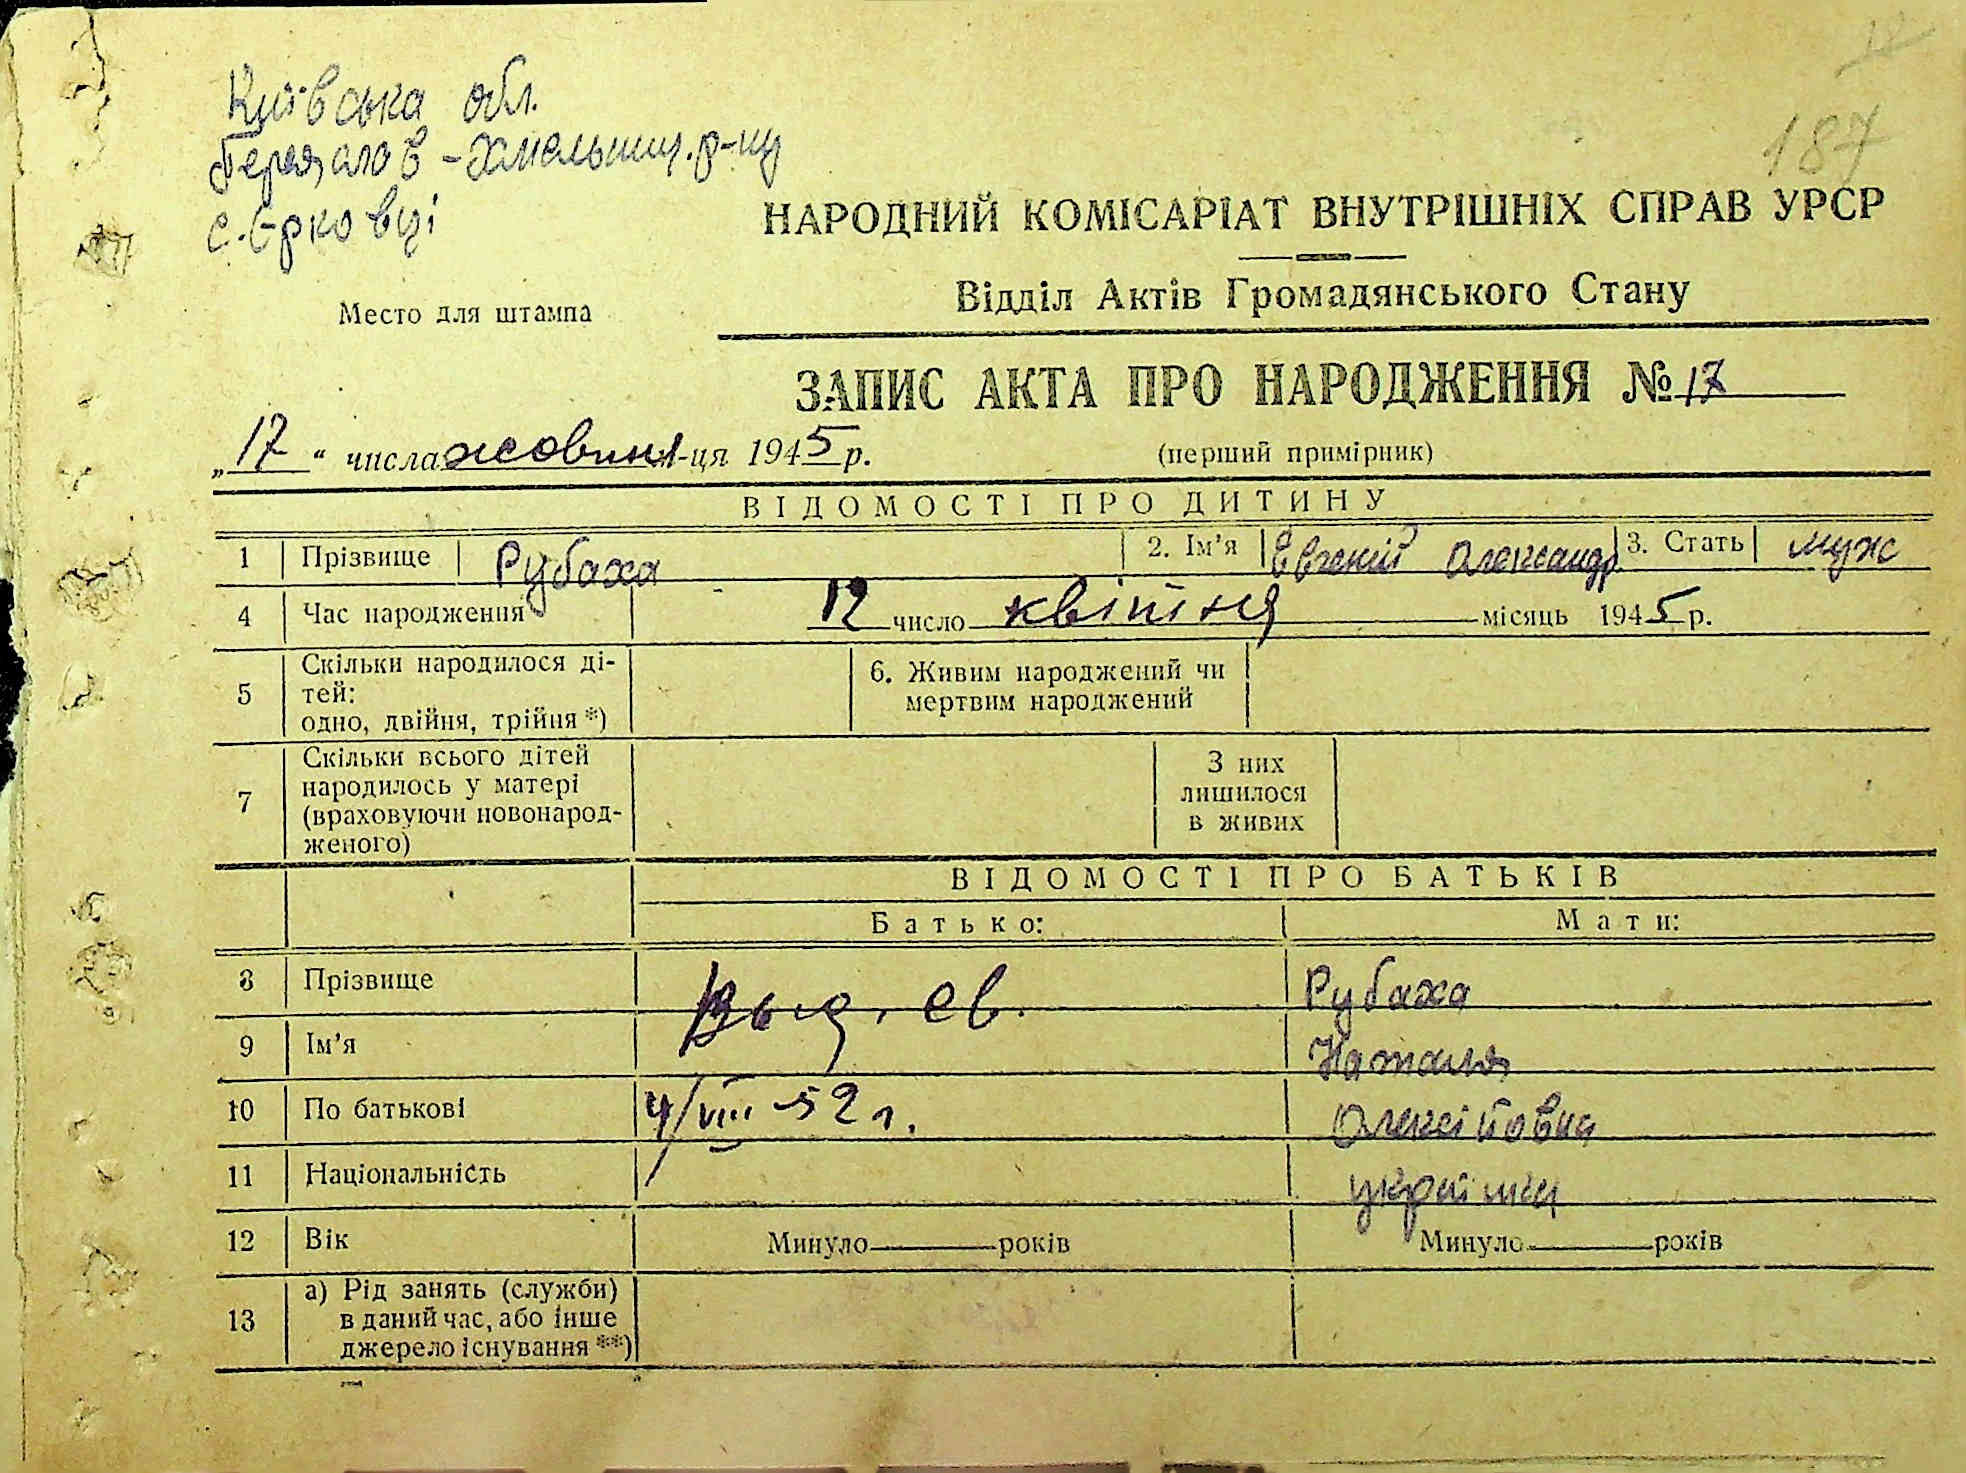 Київська обл.
Переяслов-Хмельниц. р-ну
с. Єрковці
187
НАРОДНИЙ КОМІСАРІАТ ВНУТРІШНІХ СПРАВ УРСР
Відділ Актів Громадянського Стану
Место для штампа
ЗАПИС АКТА ПРО НАРОДЖЕННЯ № 17
„17“ числа жовтня м-ця 1945 р.
(перший примірник)
ВІДОМОСТІ ПРО ДИТИНУ
1 Прізвище Рубаха 2. Ім'я Євгеній Олександр. 3. Стать муж
4 Час народження 12 число квітня місяць 1945 р.
5 Скільки народилося ді-
тей:
одно, двійня, трійня *)
6. Живим народжений чи
мертвим народжений
7 Скільки всього дітей
народилось у матері
(враховуючи новонарод-
женого)
З них
лишилося
в живих
ВІДОМОСТІ ПРО БАТЬКІВ
Батько: Мати:
8 Прізвище Выд. св. Рубаха
9 Ім'я Наталія
10 По батькові 4/VIII-52 г. Олексіївна
11 Національність українка
12 Вік Минуло років Минуло років
13 а) Рід занять (служби)
в даний час, або інше
джерело існування **)